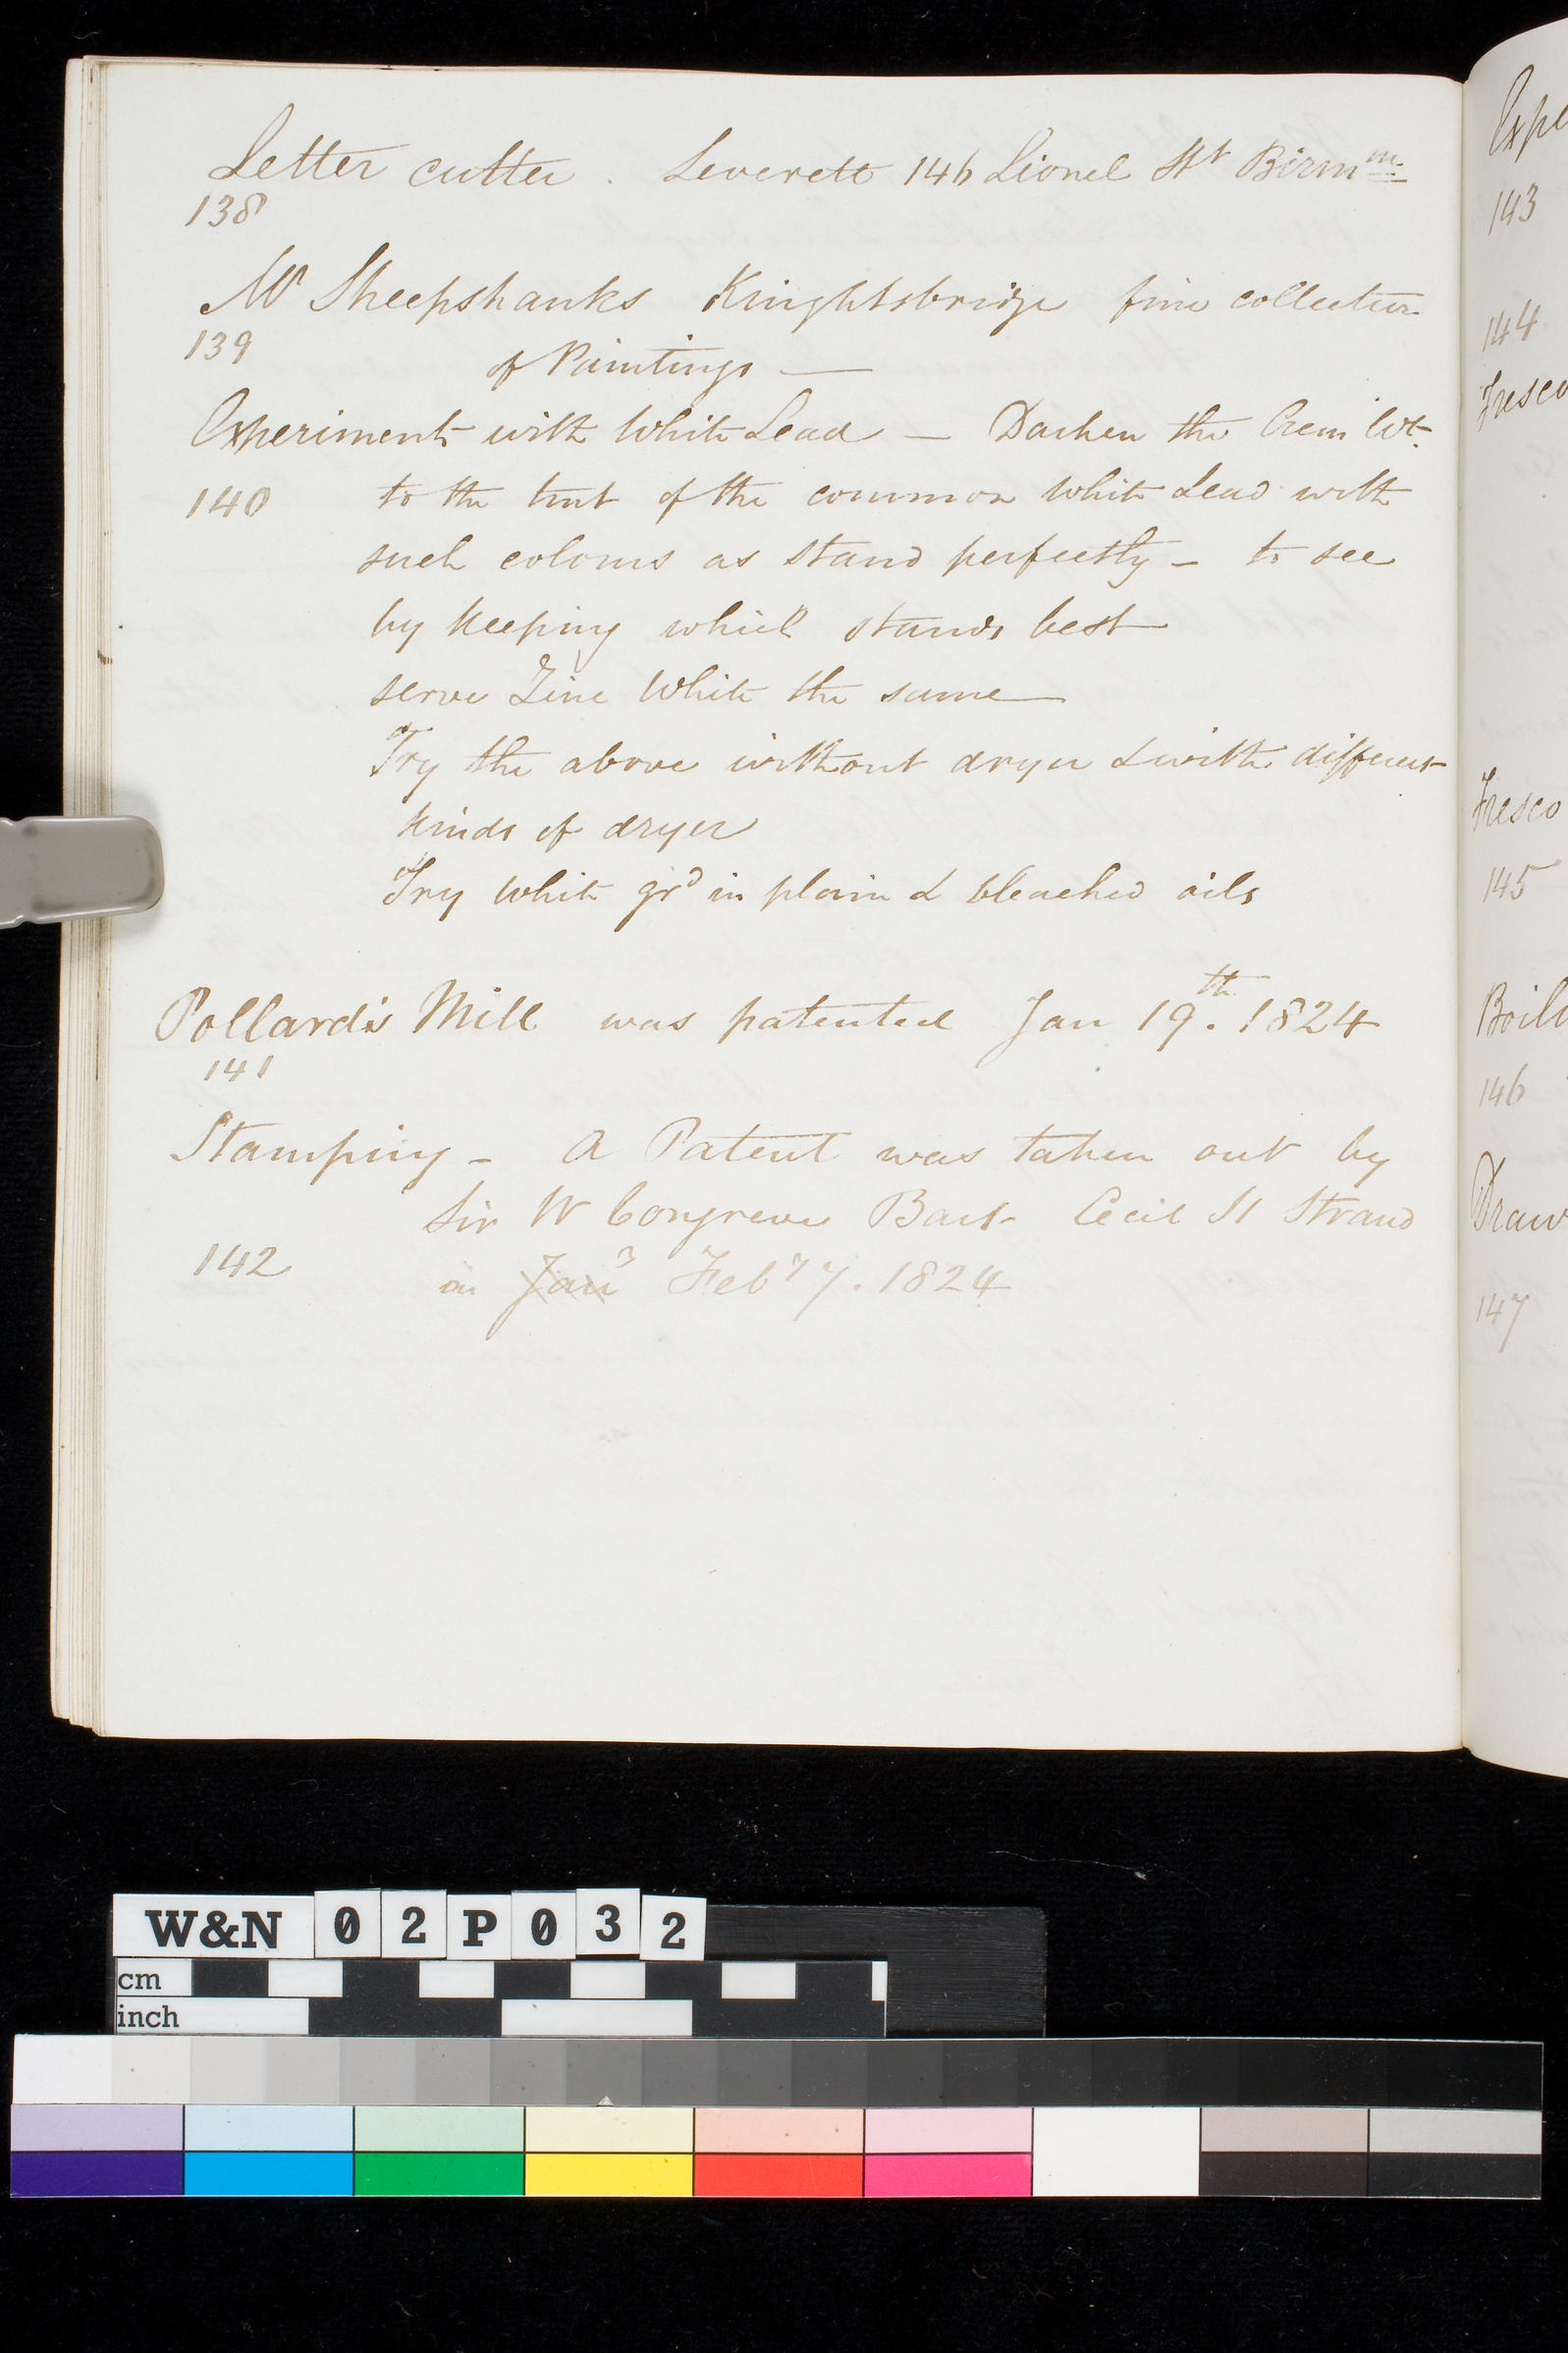 Letter cutter. Leverett 146 Lionel St Birmm.
138
Mr Sheepshanks Knightsbridge fine collection
139
of Paintings —
Experiments with White Lead — Darken the Crem Wt.
140 to the tint of the common White Lead with
such colours as stand perfectly – to see
by keeping which stands best
serve Zinc White the same
Try the above without dryer & with different
kinds of dryer
Try White grd in plain & bleached oils
Pollard's Mill was patented Jan 19th. 1824
141
Stamping – A Patent was taken out by
Sir W Congreve Bart Cecil St Strand
142 on Jany Feby 7. 1824
Expe
143
144
Fresco
Fresco
145
Boil
146
Draw
147
W&N 02P032
cm
inch